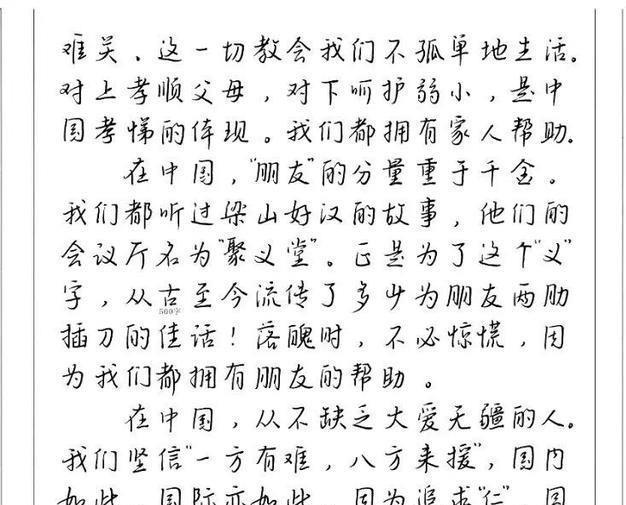 难关、这一切教会我们不孤单地生活。
对上孝顺父母，对下呵护弱小，是中
国孝悌的体现。我们都拥有家人帮助。
在中国，“朋友”的分量重于千金。
我们都听过梁山好汉的故事，他们的
会议厅名为“聚义堂”。正是为了这个“义”
字，从古至今流传了多少为朋友两肋
500字
插刀的佳话！落魄时，不必惊慌，因
为我们都拥有朋友的帮助。
在中国，从不缺乏大爱无疆的人。
我们坚信“一方有难，八方来援”，国内
如此，国际亦如此，因为追求“仁”，国